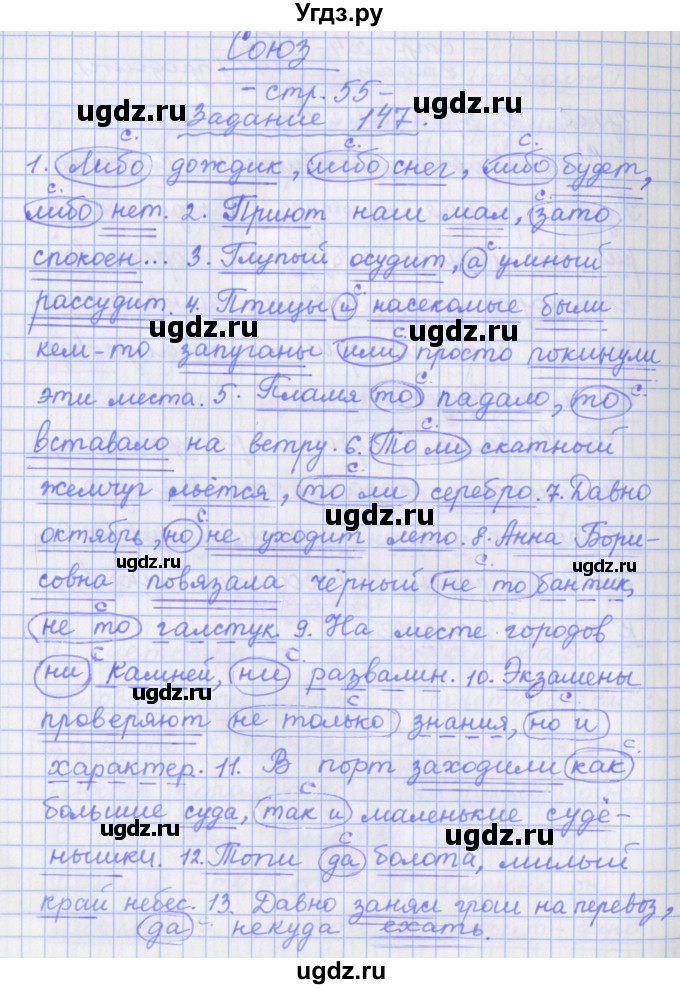 Угдз.ру
Союз
- стр. 55 -
Задание 147.
1. Либо дождик, либо снег, либо будет,
либо нет. 2. Приют наш мал, зато
спокоен... 3. Глупый осудит, а умный
рассудит. 4. Птицы и насекомые были
кем-то запуганы или просто покинули
эти места. 5. Пламя то падало, то
вставало на ветру. 6. То ли скатный
жемчуг льётся, то ли серебро. 7. Давно
октябрь, но не уходит лето. 8. Анна Бори-
совна повязала чёрный не то бантик,
не то галстук. 9. На месте городов
ни камней, ни развалин. 10. Экзамены
проверяют не только знания, но и
характер. 11. В порт заходили как
большие суда, так и маленькие судё-
нышки. 12. Топи да болота, милый
край небес. 13. Давно занял грош на перевоз,
да некуда ехать.
ugdz.ru